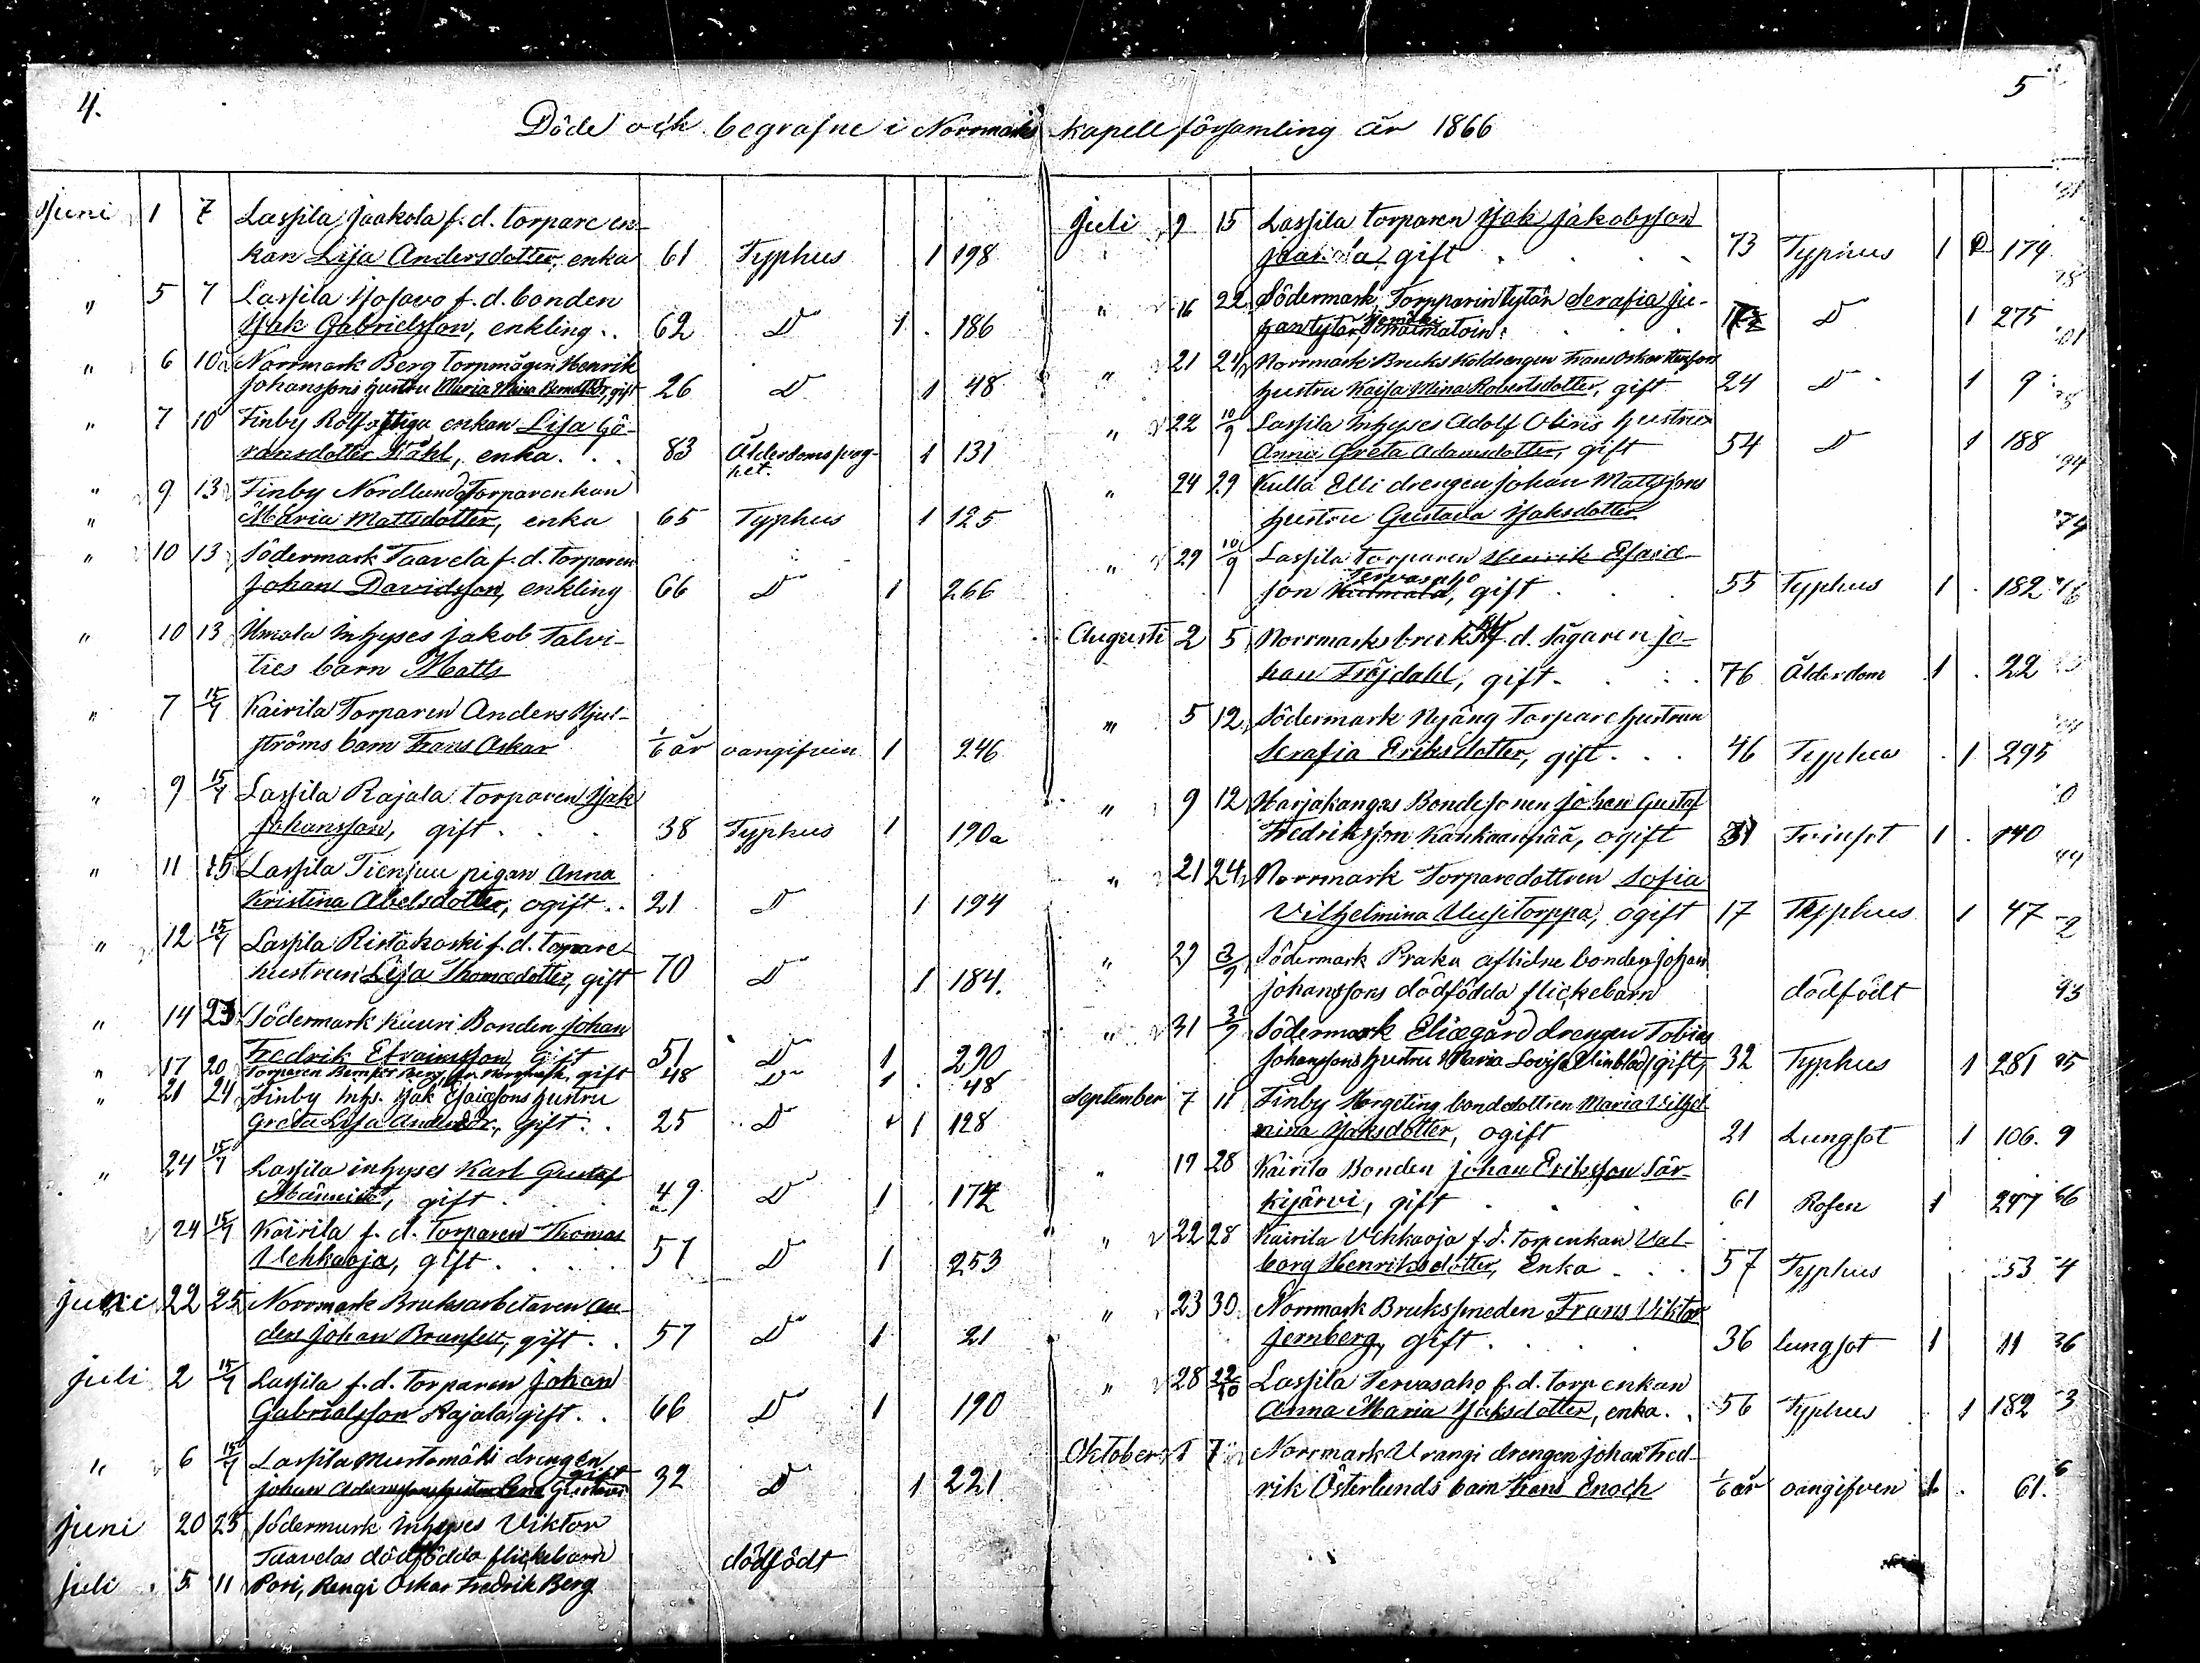 4.
5
Döde och begrafne i Norrmarks kapellförsamling år 1866
Juni 1 7 Lassila Jaakola f.d. torpare en-
kan Lisa Andersdotter, enka 61 Typhus 1 198
" 5 7 Lassila f.d. bonden
Isak Gabrielsson, enkling 62 D° 1 186
" 6 10 Norrmark Berg torpmågen Henrik
Johanssons hustru Maria Mina, gift 26 D° 1 48
" 7 10 Finby enkan Lisa Gö-
ransdotter Ståhl, enka 83 Ålderdomssvag-
het. 1 131
" 9 13 Finby Nordlund Torparenkan
" Maria Mattsdotter, enka 65 Typhus 1 125
" 10 13 Södermark Taavela f.d. torparen
Johan Davidsson, enkling 66 D° 1 266
" 10 13 inhyses Jakob Talvi-
ties barn Matts
" 7 15/7 Kairila Torparen Anders Hjul-
ströms barn Frans Oskar 1/6 år oangifven 1 246
" 9 15/7 Lassila Rajala torparen Isak
Johansson, gift 38 Typhus 1 190a
" 11 15 Lassila Tiensuu pigan Anna
Kristina Abelsdotter, ogift 21 D° 1 194
" 12 15/7 Lassila Ristakoski f.d. torpare-
hustrun Lisa Thomasdotter, gift 70 D° 1 184.
" 14 23 Södermark Kuuri Bonden Johan
Fredrik Efraimsson gift 51 D° 1 290
" 17 20 Torparen Berg fr. Norrmark, gift 48 D° 1 48
" 21 24 Finby Inhs. Isak Esaiassons hustru
Greta Lisa, gift 25 D° 1 128
" 24 15/7 Lassila inhyses Karl Gustaf
Männistö, gift 49 D° 1 174
24 15/7 Kairila f.d. Torparen Thomas
Vehkaoja, gift 57 D° 1 253
Juni 22 25 Norrmark Bruksarbetaren An-
ders Johan, gift 57 D° 1 21
Juli 2 15/7 Lassila f.d. torparen Johan
Gabrielsson Rajala, gift 66 D° 1 190
" 6 15/7 Lassila Mustamäki drengen
gift
Johan 32 D° 1 221
Juni 20 25 Södermark Inhyses Viktor
Taavelas dödfödda flickebarn dödfödt
Juli 5 11 Pori, Rengi Oskar Fredrik Berg
Juli 9 15 Lassila torparen Isak Jakobsson
Jaakola, gift 73 Typhus 1 179
" 16 22 Södermark, Torpparintytär Serafia Ju-
hantytär, D° 1 275
" 21 24 Norrmark Bruks Koldrengen Frans Oskar
hustru Kaisa Mina Robertsdotter, gift 24 D° 1 9
" 22 10/9 Lassila Inhyses Adolf Olins hustru
Anna Greta Adamsdotter, gift 54 D° 1 188
" 24 29 Kulla Elli drengen Johan Mattssons
hustru Gustava Isaksdotter
" 29 10/9 Lassila torparen Henrik Esaid-
Tervasaho
son, gift 55 Typhus 1 182
Augusti 2 5 Norrmarks bruk f.d. Sågaren Jo-
han Fröjdahl, gift 76 Ålderdom 1 22
" 5 12 Södermark Nyäng Torparehustrun
Serafia Eriksdotter, gift 46 Typhus 1 295
" 9 12 Harjakangas Bondesonen Johan Gustaf
Fredriksson Kankaanpää, ogift 31 1 140
" 21 24 Norrmark Torparedottren Sofia
Vilhelmina Uusitorppa, ogift 17 Typhus 1 47
" 29 2/9 Södermark Praku aflidne bonden Johan
Johanssons dödfödda flickebarn dödfödt
" 31 3/9 Södermark Eliægård drengen Tobias
Johanssons hustru Maria Lovisa gift, 32 Typhus 1 281
September 7 11 Finby Horgeting bondedottren Maria Vilhel-
mina Isaksdotter, ogift 21 Lungsot 1 106.
" 19 28 Kairila Bonden Johan Eriksson Sär-
kijärvi, gift 61 Rosen 1 247
" 22 28 Kairila Vehkaoja f.d. torpenkan Val-
borg Henriksdotter, Enka 57 Typhus 53
" 23 30 Norrmark Brukssmeden Frans Viktor
Jernberg, gift 36 Lungsot 1 11
" 28 22/10 Lassila Tervasaho f.d. torpenkan
Anna Maria Isaksdotter, enka 56 Typhus 1 182
Oktober 1 7 Norrmark Urangi drengen Johan Fred-
rik Österlunds barn Frans Enoch 1/6 år oangifven 1 61.